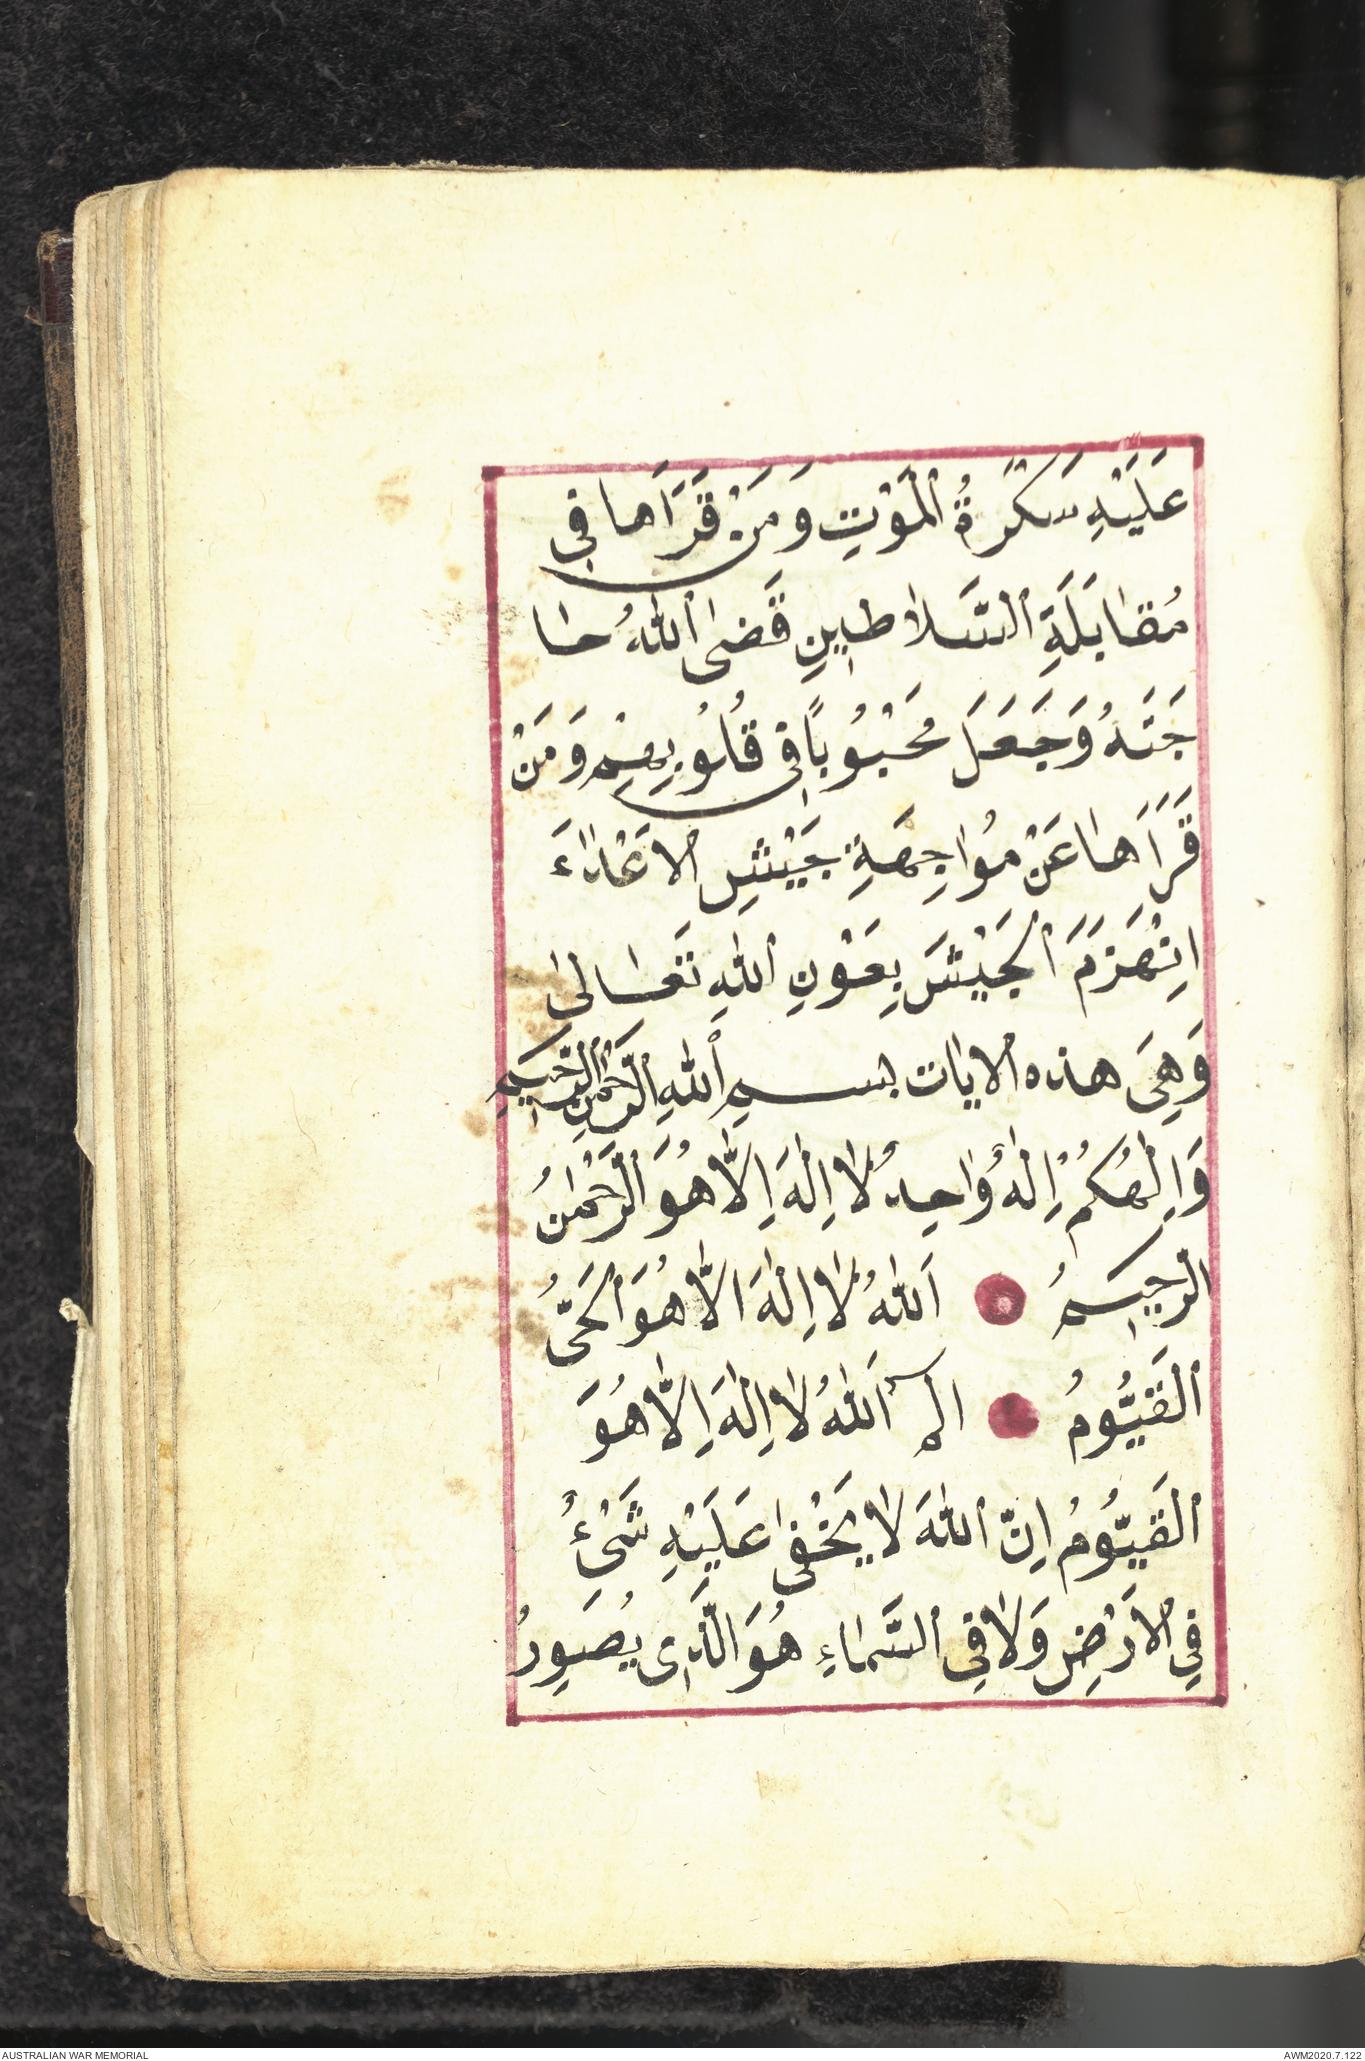 عَلَيْهِ سَكْرَةُ الْمَوْتِ وَمَنْ قَرَاَهَا فِي
مُقَابَلَةِ السَّلَاطِينِ قَضَى اللّٰهُ حَا
جَتَهُ وَجَعَلَ مَحْبُوبًا فِي قُلُوبِهِمْ وَمَنْ
قَرَاَهَا عَنْ مُوَاجِهَةِ جَيْشِ الْاَعْدَاءَ
اِنْهَزَمَ الْجَيْشَ بِعَوْنِ اللّٰهِ تَعَالٰى
وَهِىَ هٰذه الايَات بسمِ اللّٰهِ الرَّحْمٰنِ الرَّحِيمِ
وَاِلٰهُكُمْ اِلٰهٌ وَاحِدٌ لَا اِلٰهَ اِلَّا هُوَ الرَّحْمٰنُ
الرحِيمُ اَللّٰهُ لَا اِلٰهَ الَّا هُوَ الْحَىُّ
الْقَيُّومُ الم اَللّٰهُ لَا اِلٰهَ اِلَّا هُوَ
الْقَيُّومُ اِنَّ اللّٰهَ لَا يَخْفٰى عَلَيْهِ شَىْءٌ
فِي الْاَرْضِ وَلَا فِي السَّمَاءِ هُوَ الَّذِى يُصَوِرُ
AUSTRALIAN WAR MEMORIAL
AWM2020.7.122